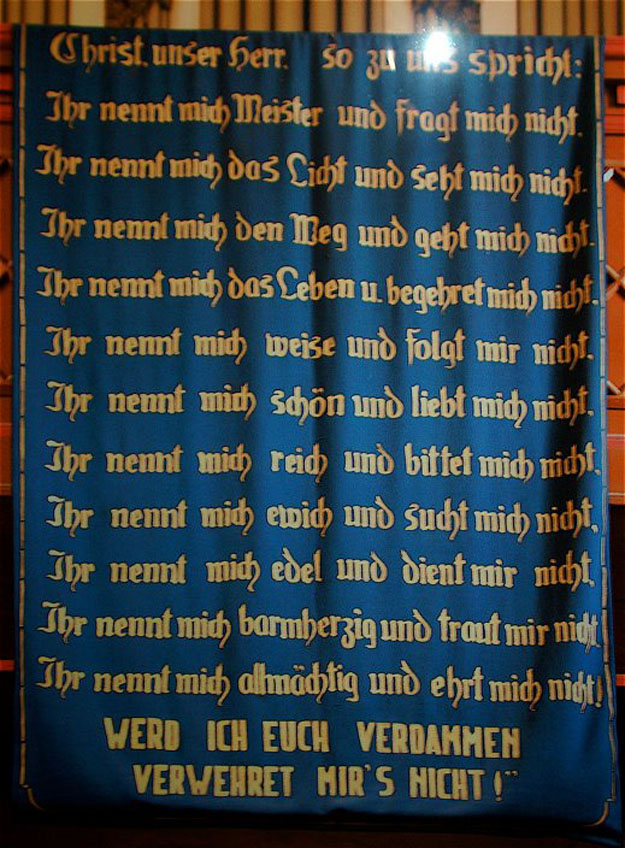 Christ, unser Herr, so zu uns spricht:
Ihr nennt mich Meister und fragt mich nicht.
Ihr nennt mich das Licht und seht mich nicht.
Ihr nennt mich den Weg und geht mich nicht.
Ihr nennt mich das Leben u. begehret mich nicht.
Ihr nennt mich weise und folgt mir nicht.
Ihr nennt mich schön und liebt mich nicht.
Ihr nennt mich reich und bittet mich nicht.
Ihr nennt mich ewich und sucht mich nicht.
Ihr nennt mich edel und dient mir nicht.
Ihr nennt mich barmherzig und traut mir nicht
Ihr nennt mich allmächtig und ehrt mich nicht!
WERD ICH EUCH VERDAMMEN
VERWEHRET MIR'S NICHT!"